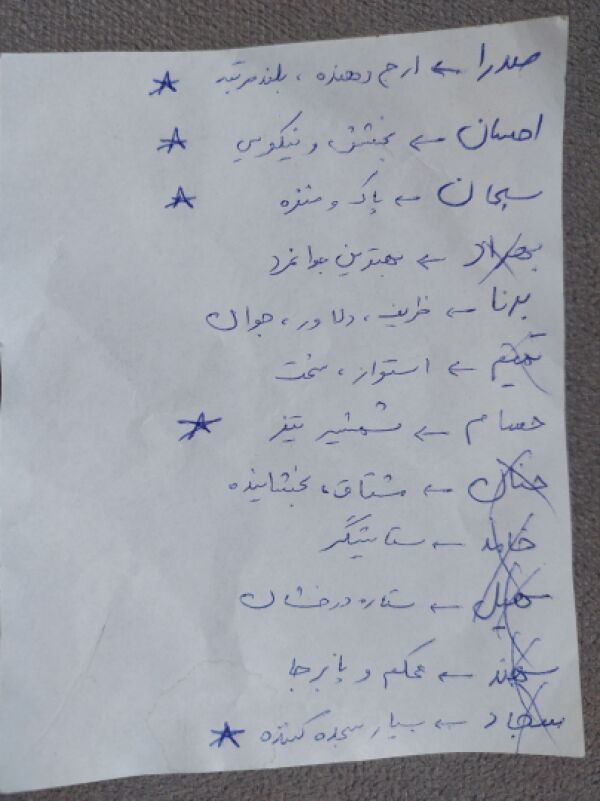 صدرا ← ارج دهنده ، بلند مرتبه ★
احسان ← بخشش و نیکویی ★
سبحان ← پاک و منزه ★
بهراد ← بهترین جوانمرد
برنا ← ظریف ، دلاور ، جوان
تمیم ← استوار ، سخت
حسام ← شمشیر تیز ★
حنان ← مشتاق ، بخشاینده
حامد ← ستایشگر
سهیل ← ستاره درخشان
سهند ← محکم و پابرجا
سجاد ← بسیار سجده کننده ★